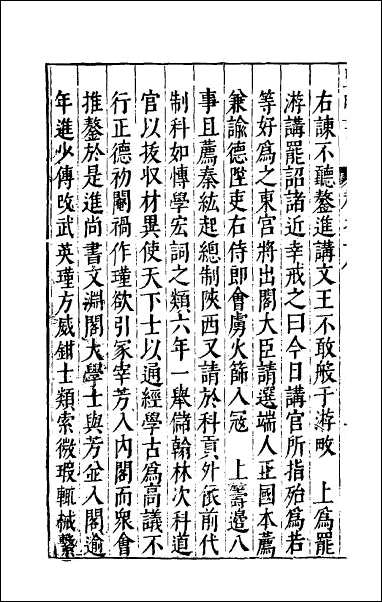 右諫不聽鏊進講文王不敢般于游畋　上爲罷
游講罷詔諸近幸戒之曰今日講官所指殆爲若
等好爲之東宮將出閣大臣請選端人正國本薦
兼諭德陞吏右侍郎會虜火篩入寇　上籌邊八
事且薦秦紘起總制陝西又請於科貢外依前代
制科如博學宏詞之類六年一舉儲翰林次科道
官以拔收材異使天下士以通經學古爲高議不
行正德初閹禍作瑾欲引冢宰芳入內閣而衆會
推鏊於是進尚書文淵閣大學士與芳並入閣逾
年進少傅改武英瑾方威鉗士類索微瑕輒械繫